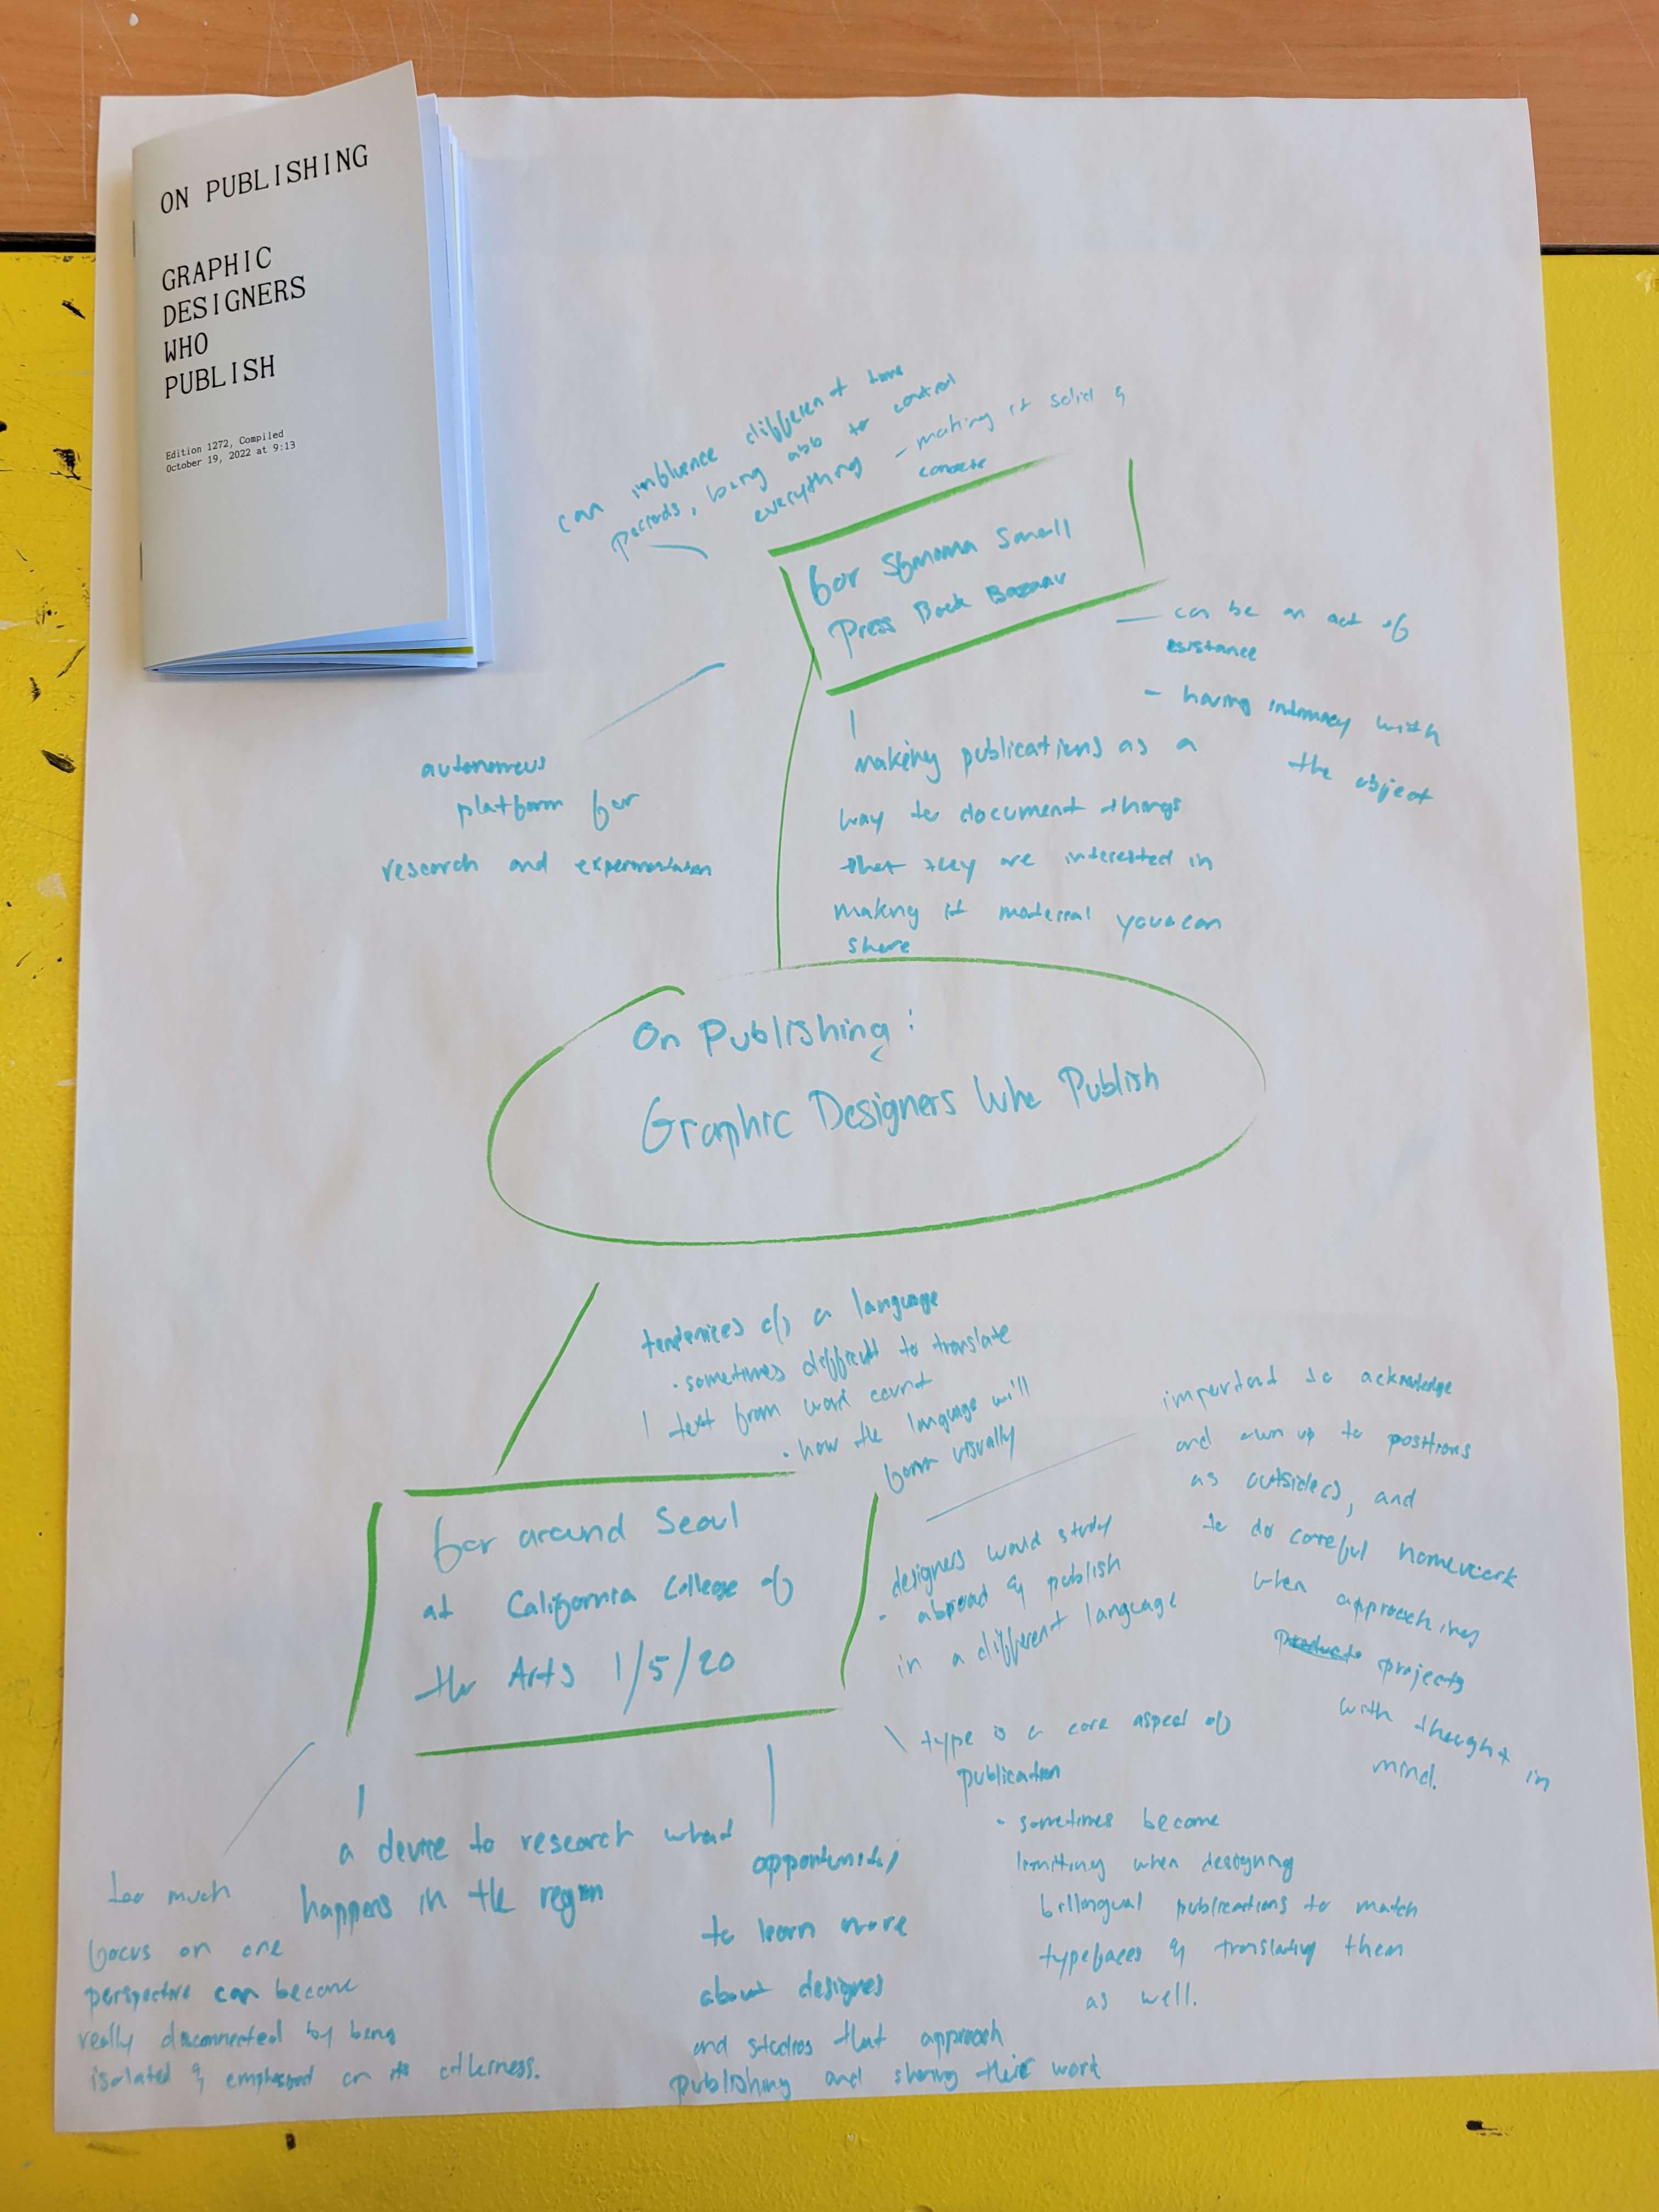 ON PUBLISHING
GRAPHIC
DESIGNERS
WHO
PUBLISH
Edition 1272, Compiled
October 19, 2022 at 9:13
can influence different time
periods, being able to control
everything
- making it solid &
concrete
for Sonoma Small
Press Book Bazaar
- can be an act of
resistance
- having intimacy with
the object
autonomous
platform for
research and experimentation
making publications as a
way to document things
that they are interested in
making it material you can
share
On Publishing:
Graphic Designers Who Publish
tendenices of a language
· sometimes difficult to translate
text from word count
· how the language will
form visually
important to acknowledge
and own up to positions
as outsiders, and
to do careful homework
when approaching
projects
with thought in
mind.
for around Seoul
at California College of
the Arts 1/5/20
designers would study
abroad & publish
in a different language
type is a core aspect of
publication
· sometimes become
limiting when designing
billingual publications to match
typefaces & translating them
as well.
a device to research what
happens in the region
too much
focus on one
perspective can become
really disconnected by being
isolated & on its otherness.
opportunity
to learn more
about designers
and studios that approach
publishing and sharing their work